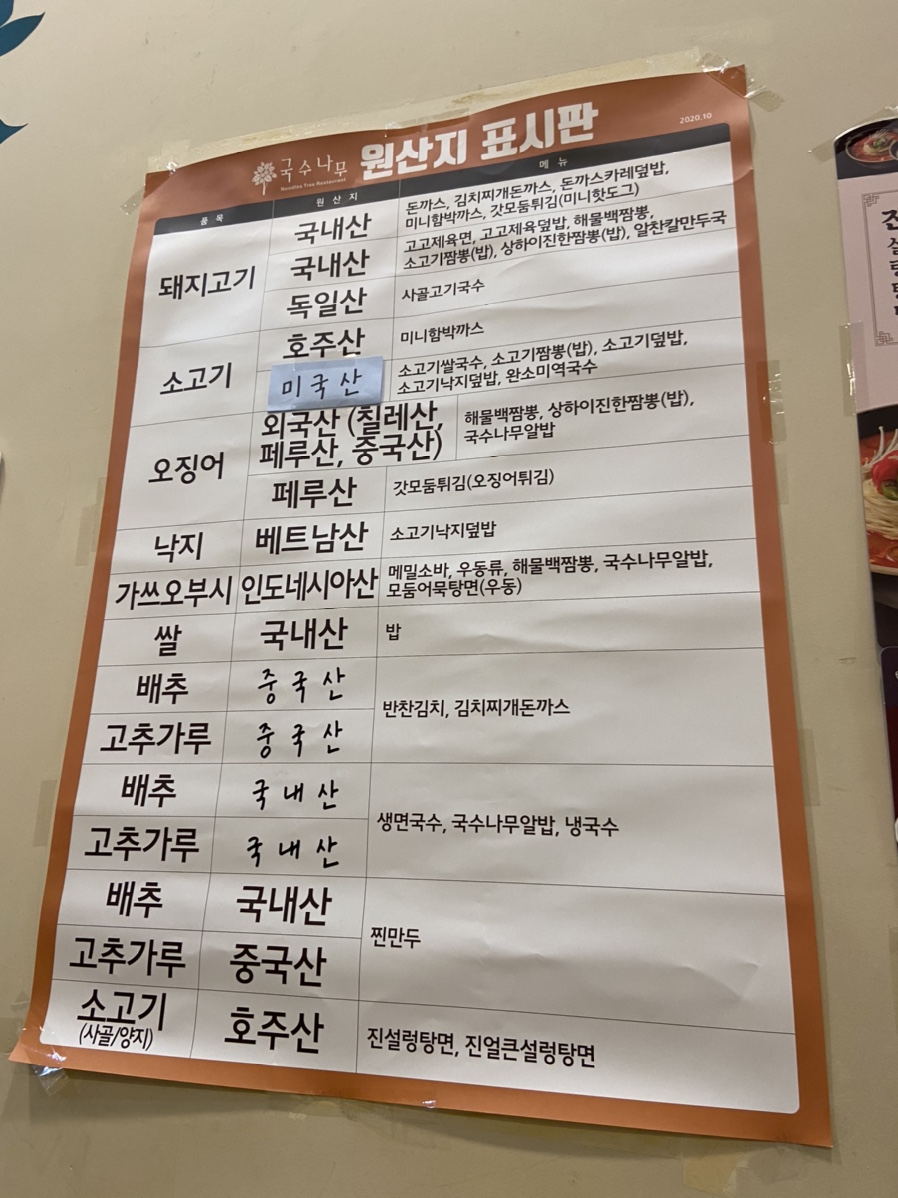 국수나무
Noodles Tree Restaurant
원산지 표시판
2020.10
품목 원산지 메뉴
돼지고기
국내산
돈까스, 김치찌개돈까스, 돈까스카레덮밥,
미니함박까스, 갓모둠튀김(미니핫도그)
국내산
고고제육면, 고고제육덮밥, 해물백짬뽕,
소고기짬뽕(밥), 상하이진한짬뽕(밥), 알찬칼만두국
독일산
사골고기국수
소고기
호주산
미니함박까스
미국산
소고기쌀국수, 소고기짬뽕(밥), 소고기덮밥,
소고기낙지덮밥, 완소미역국수
오징어
외국산 (칠레산,
페루산, 중국산)
해물백짬뽕, 상하이진한짬뽕(밥),
국수나무알밥
페루산
갓모둠튀김(오징어튀김)
낙지
베트남산
소고기낙지덮밥
가쓰오부시
인도네시아산
메밀소바, 우동류, 해물백짬뽕, 국수나무알밥,
모둠어묵탕면(우동)
쌀
국내산
밥
배추
중국산
고추가루
중국산
반찬김치, 김치찌개돈까스
배추
국내산
고추가루
국내산
생면국수, 국수나무알밥, 냉국수
배추
국내산
고추가루
중국산
찐만두
소고기
(사골/양지)
호주산
진설렁탕면, 진얼큰설렁탕면